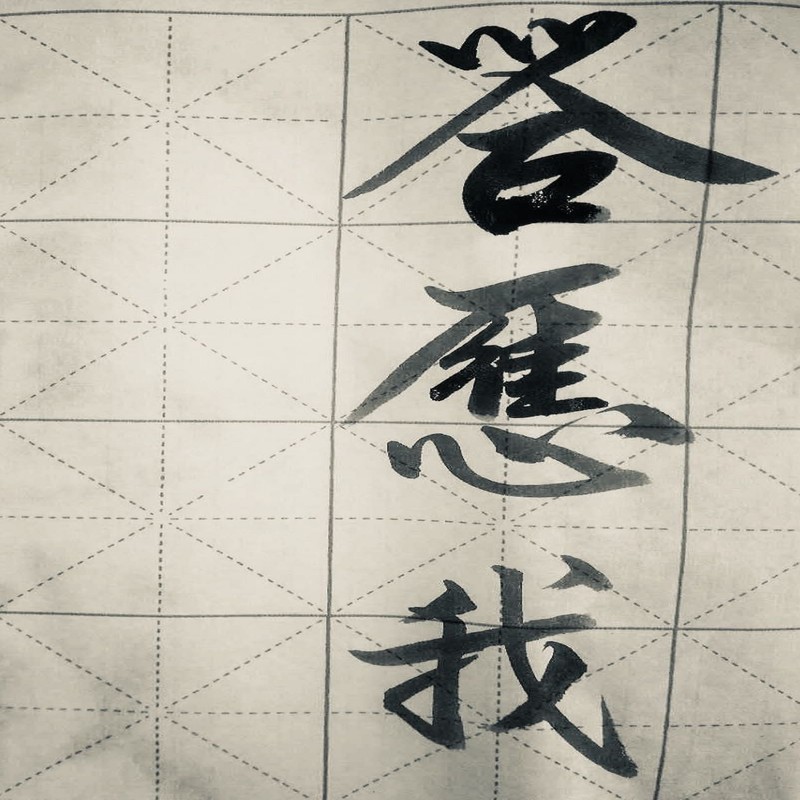 答應我